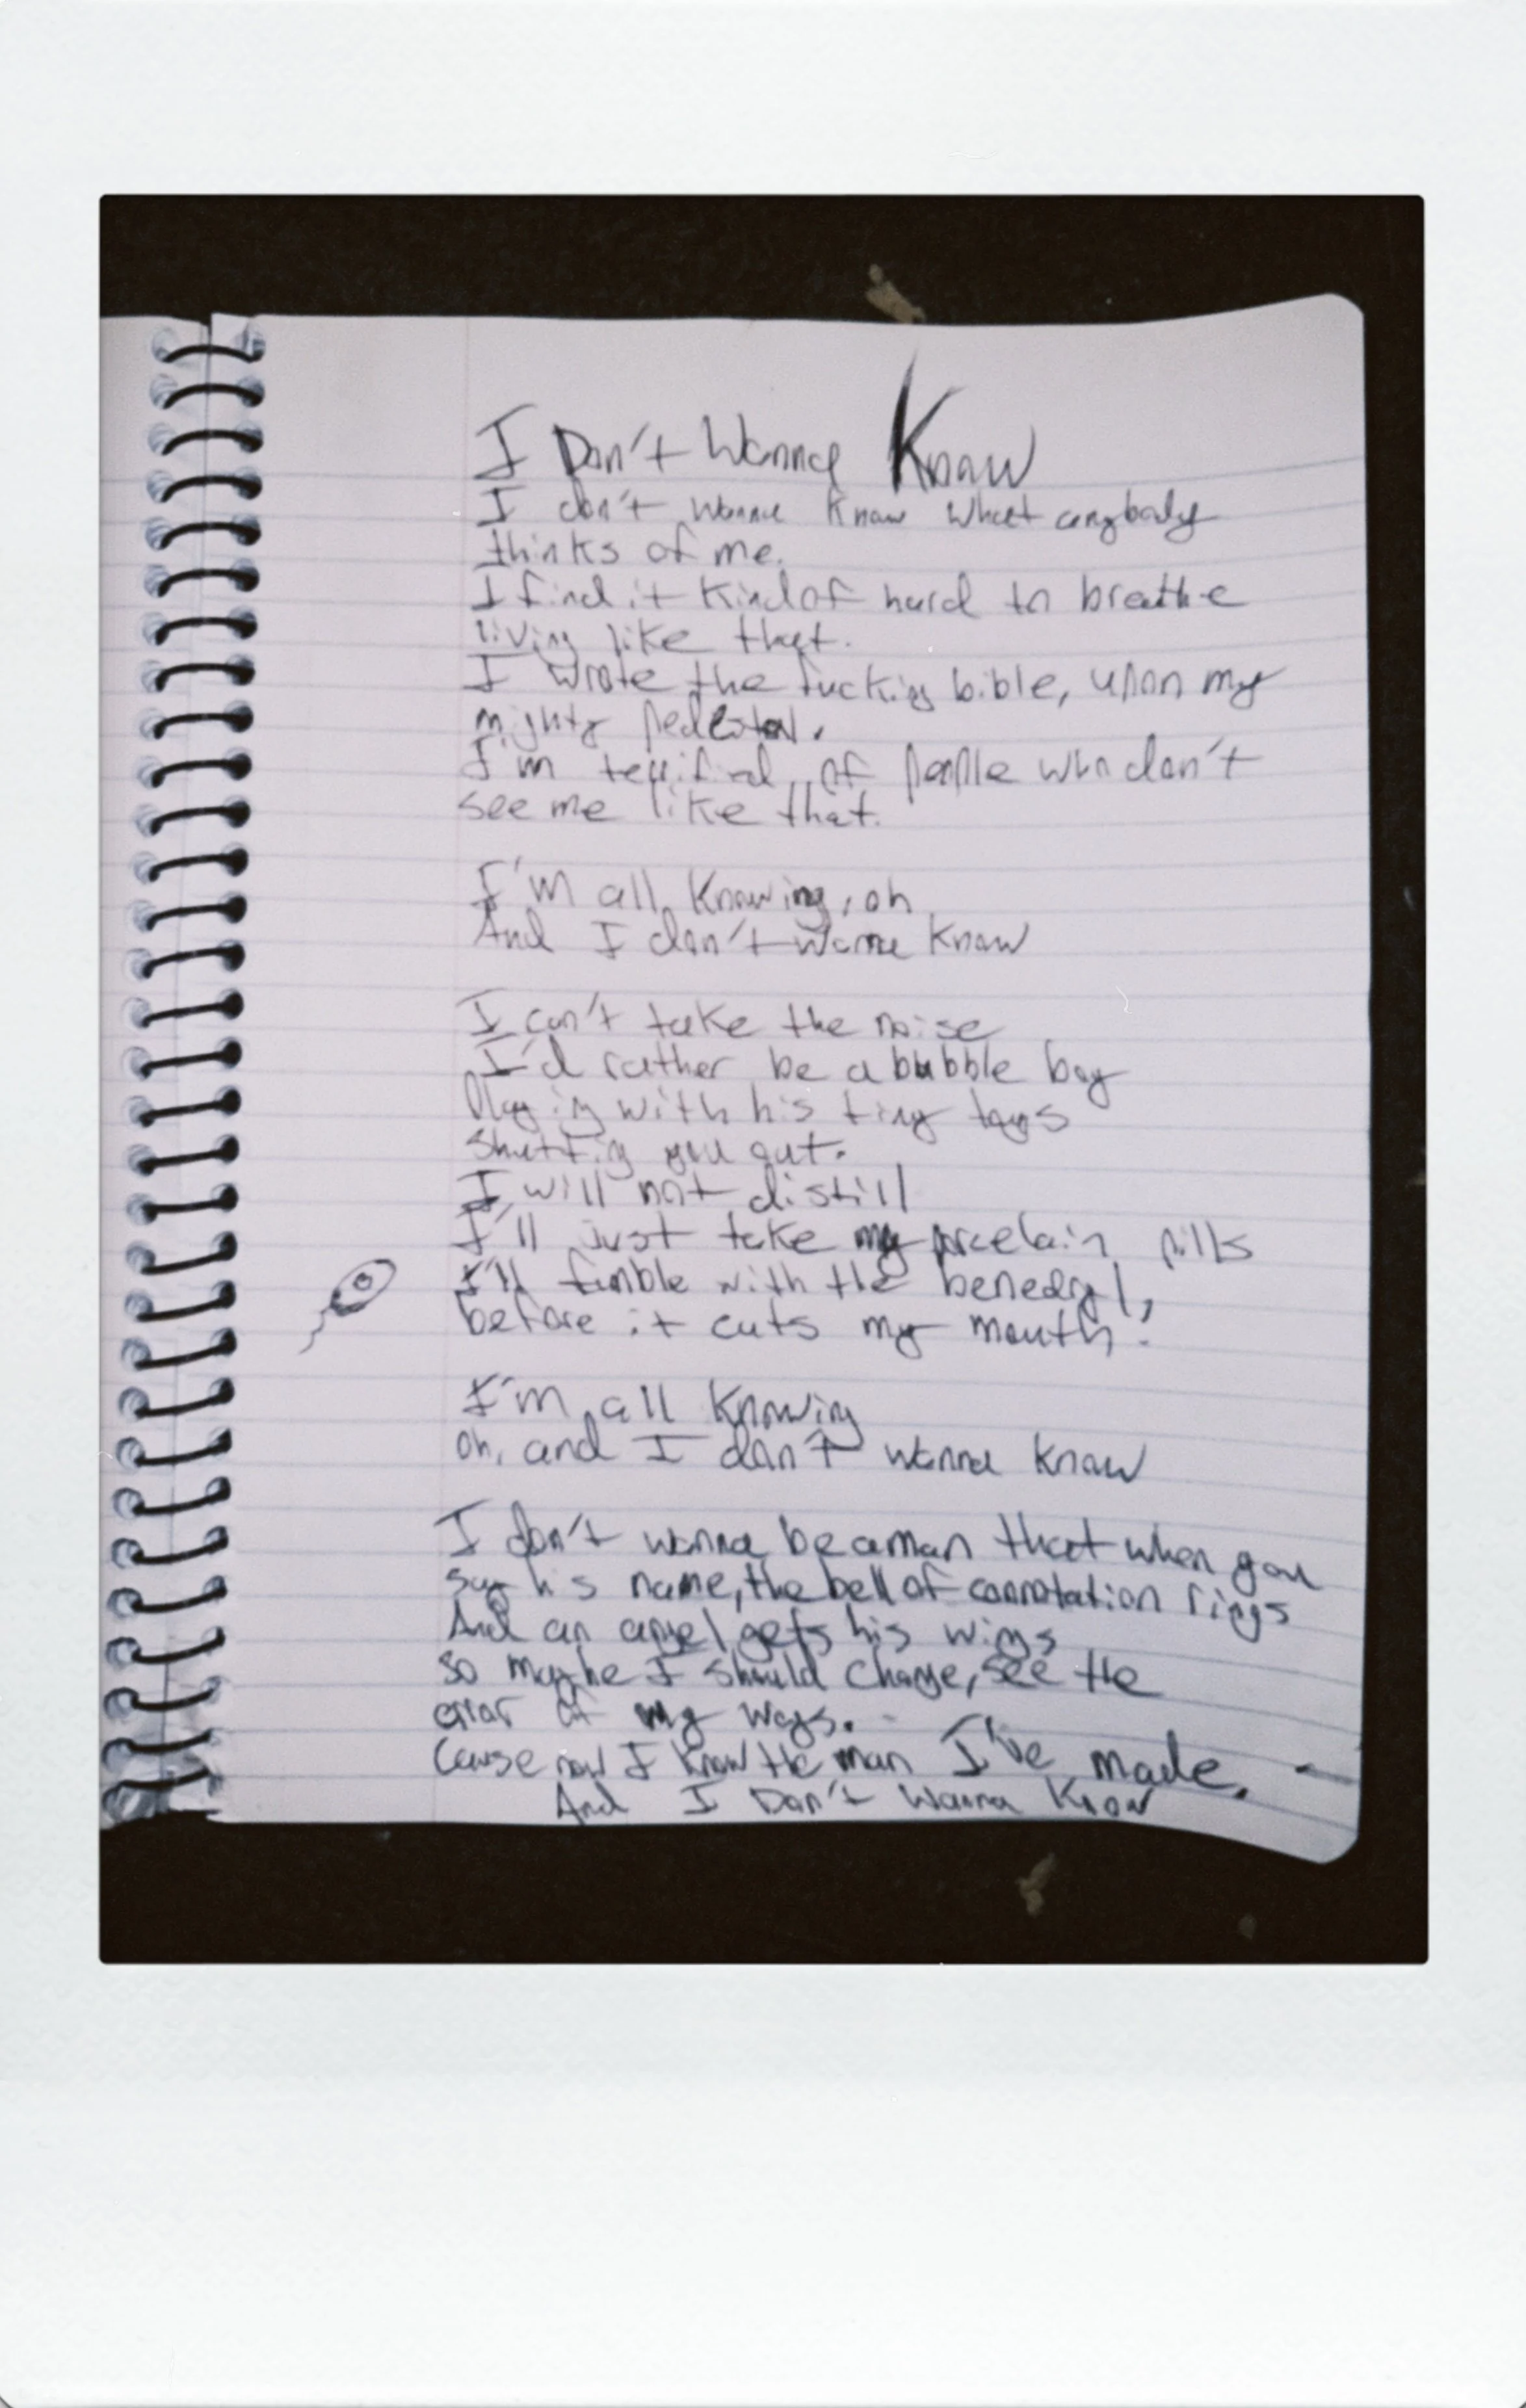 I Don't Wanna Know
I don't wanna know what anybody
thinks of me.
I find it kind of hard to breathe
living like that.
I wrote the fucking bible, upon my
mighty pedestal.
I'm terrified of people who don't
see me like that.
I'm all knowing, oh
And I don't wanna know
I can't take the noise
I'd rather be a bubble boy
Playing with his tiny toys
Shutting you out.
I will not distill
I'll just take my porcelain pills
I'll fumble with the benedryl,
before it cuts my mouth.
I'm all knowing
oh, and I don't wanna know
I don't wanna be a man that when you
say his name, the bell of connotation rings
And an angel gets his wings
so maybe I should change, see the
error of my ways.
Cause now I know the man I've made.
And I Don't Wanna Know